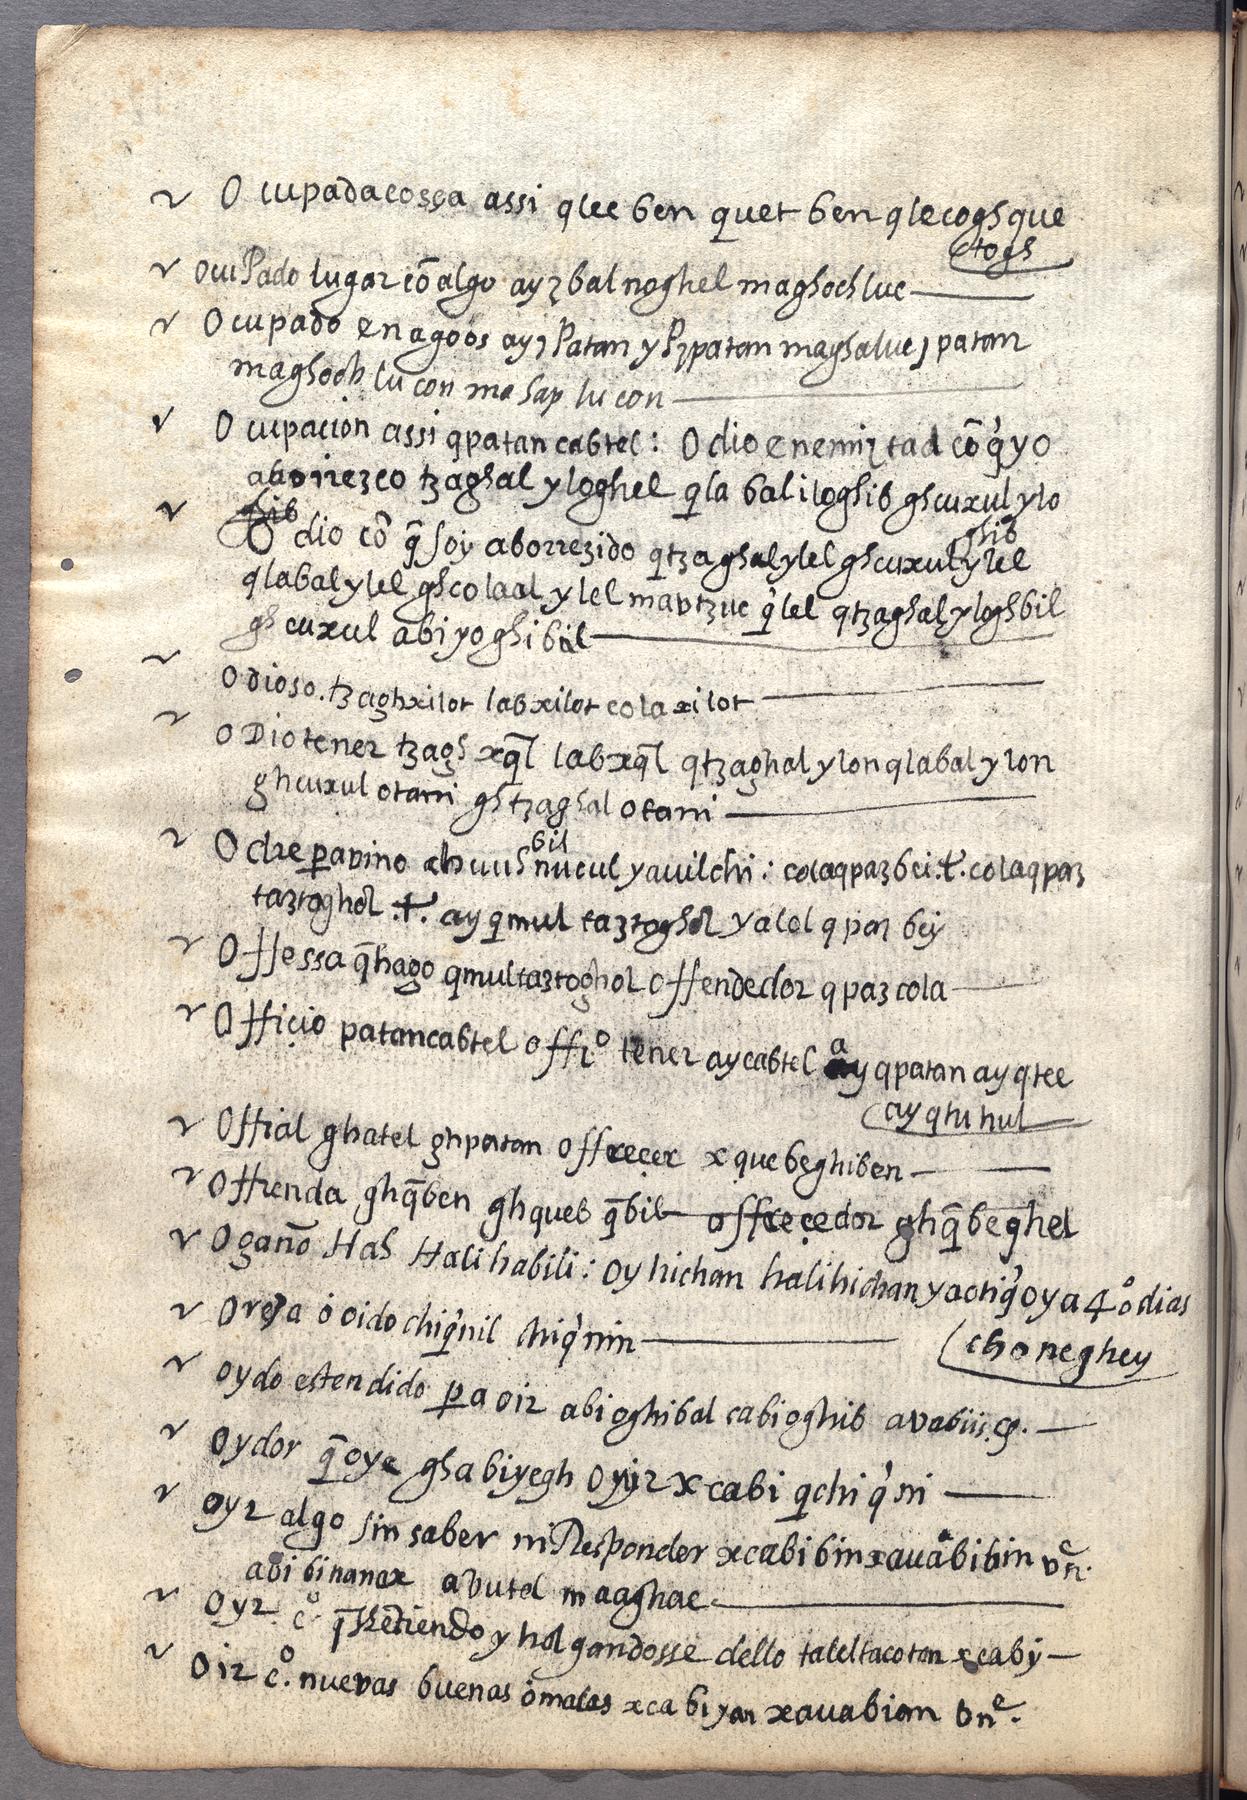 O cupada cossa assi qlee ben quet ben qlecoghque
ctogh
ocuPado lugar cō algo ayʒbal noghel maghochluc
Ocupado enagoos ayʒ Patan y Pʒpatan maghalucʒ patan
maghoch lu con ma hap lu con
Ocupacion assi qpatan cabtel: Odio enemiʒtad cō q̄ yo
aborreʒco tʒaghal yloghel qla bal iloghib ghcuxul ylo
ghib
Odio cō q̄ soy aborreʒido qtʒaghalylel ghcuxul ylel
qlabalylel ghcolaal ylel mavtʒuc q̄lel qtʒaghalyloghbil
gh cuxul abiyoghibal
Odioso. tʒaghxilot labxilot colaxilot
oDiotener tʒagh xq̄l labxq̄l qtʒaghal ylon qlabal ylon
ghcuxul otani ghtʒaghal otani
bil
Odre p̱avino chuuh nucul yauilchi: colaqpaʒbei .t. colaqpaʒ
taʒtoghol .t. ay qmul taʒtoghol yalol qpaʒ bey
Offessa q̄hago qmultaʒtoghol Offendedor qpaʒcola
Offiçio patancabtel offi.º tener aycabtel ay qpatan ayqtee
ayqtuhul
Offiial ghatel ghpatan offreçer xquebeghiben
Offrenda ghq̄ben ghqueb q̄bil offreçedor ghq̄beghel
Ogaño Hab Halihabili: oy hichan halihichan yaotiq̄ oy a 4º dias
choneghey
Oreja ó oido chiq̄nil chiq̄nin
oydo estendido p̱a oir abioghibal cabioghib avabii.cp.
Oydor q̄ oye ghabiyegh Oyir xcabi qchiq̄ni
oyr algo sin saber ni Responder xcabibin xauabibin vne.
abi binanax avutel maaghae
Oyr cº. q̄ Hediendo y holgandosse dello taleltacotan xcaby
Oir cº. nuevas buenas ómalas xcabiyan xauabian vne.